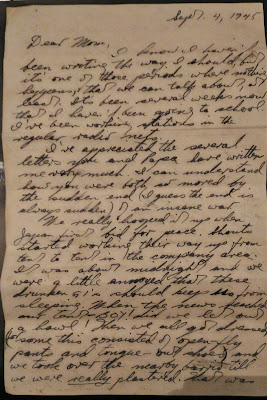 Sept. 4, 1945
Dear Mom,
I know I haven't
been writing the way I should, but
it's one of those periods where nothing
happens that we can talk about, at
least. It's been several weeks now
that I haven't been going to school.
I've been working stations in the
regular radio nets.
I've appreciated the several
letters you and Papa have written
me very much. I can understand
how you were both so moved by
the sudden end (I guess the end is
always sudden) of a insane war.
We really hooped it up when
Japan first bid for peace. Shouts
started working their way up from
tent to tent in the company area.
It was about midnight and we
were a little annoyed that these
drunken G.I.'s should keep us from
sleeping. When the news reached
our tent - boy! did we let out
a howl. Then we all got dressed,
(for some this consisted of open-fly
pants and tongue-out shoes) and
we took over the nearby till
we were really plastered. That was